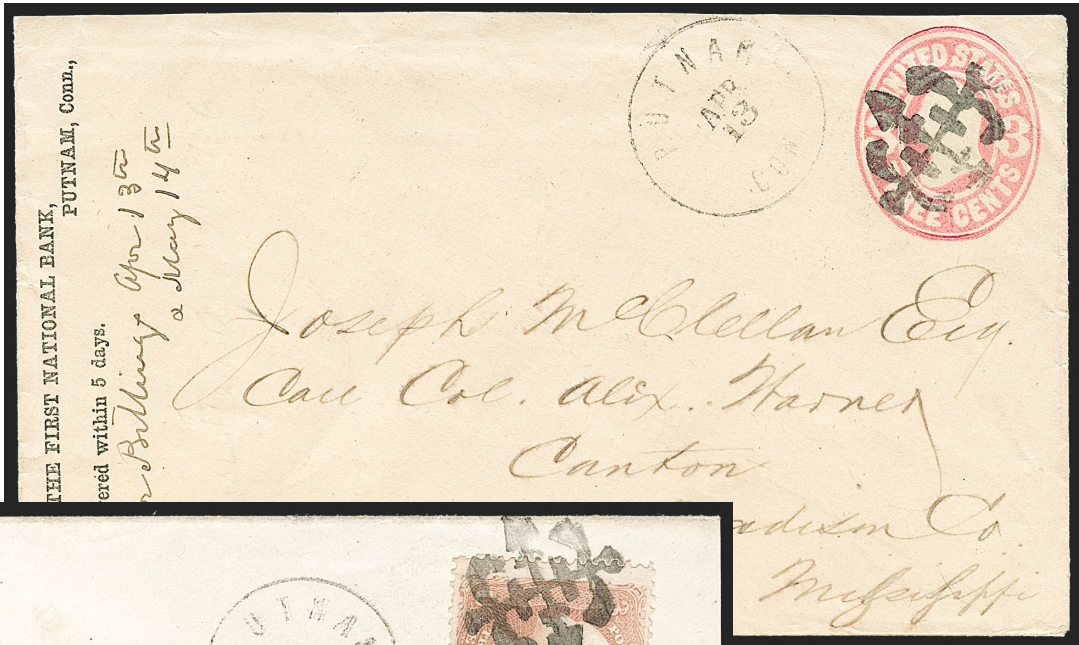 THE FIRST NATIONAL BANK,
PUTNAM, Conn.,
ered within 5 days.
Billings Apr 13th
& May 14th
PUTNAM
APR
13
CON
UNITED STATES
3
EE CENTS
Joseph McClellan Esq.
Care Col. Alex. Warner
Canton
adison Co.
Mississippi
UTNAM